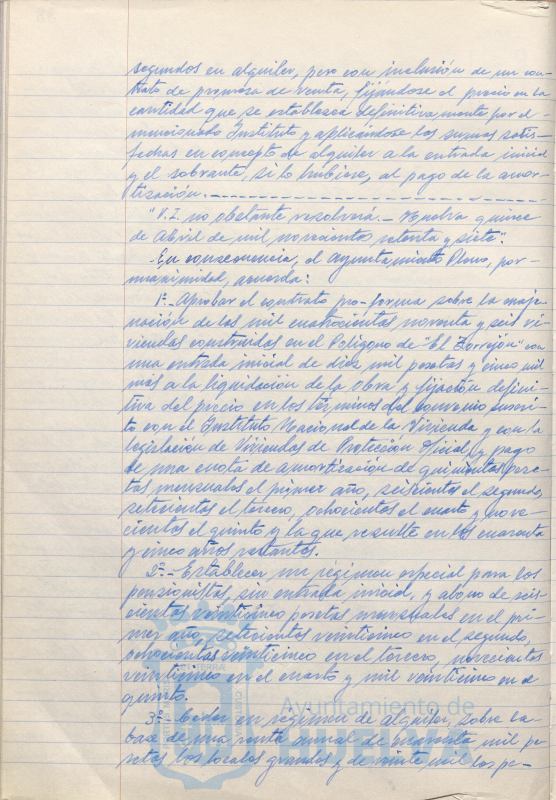 segundos en alquiler, pero con inclusión de un con-
trato de promesa de venta, fijándose el precio en la
cantidad que se establezca definitivamente por el
mencionado Instituto y aplicándose las sumas satis-
fechas en concepto de alquiler a la entrada inicial
y el sobrante, si lo hubiese, al pago de la amor-
tización.
"V.I. no obstante resolverá.- Huelva quince
de Abril de mil novecientos setenta y siete".
En consecuencia, el Ayuntamiento Pleno, por
unanimidad, acuerda:
1º.- Aprobar el contrato pro-forma sobre la enaje-
nación de las mil cuatrocientas noventa y seis vi-
viendas construidas en el Polígono de "El Torrejón" con
una entrada inicial de diez mil pesetas y cinco mil
más a la liquidación de la obra y fijación defini-
tiva del precio en los términos del convenio suscri-
to con el Instituto Nacional de la Vivienda y con la
legislación de Viviendas de Protección Oficial, y pago
de una cuota de amortización de quinientas pese-
tas mensuales el primer año, seiscientas el segundo,
setecientas el tercero, ochocientas el cuarto y nove-
cientas el quinto y la que resulte en los cuarenta
y cinco años restantes.
2º.- Establecer un régimen especial para los
pensionistas, sin entrada inicial, y abono de seis-
cientas veinticinco pesetas mensuales en el pri-
mer año, setecientas veinticinco en el segundo,
ochocientas veinticinco en el tercero, novecientas
veinticinco en el cuarto y mil veinticinco en el
quinto.
3º.- Ceder en régimen de alquiler, sobre la
base de una renta anual de cuarenta mil pe-
setas los locales grandes y de veinte mil los pe-
Ayuntamiento de
HUELVA